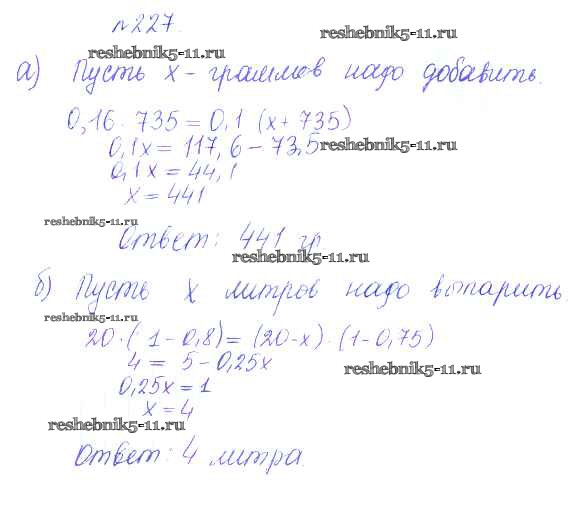 №227.
reshebnik5-11.ru
reshebnik5-11.ru
а) Пусть x - граммов надо добавить.
0,16 · 735 = 0,1 (x + 735)
0,1x = 117,6 - 73,5
reshebnik5-11.ru
0,1x = 44,1
x = 441
reshebnik5-11.ru
Ответ: 441 гр.
reshebnik5-11.ru
б) Пусть x литров надо выпарить.
reshebnik5-11.ru
20 · (1 - 0,8) = (20 - x) · (1 - 0,75)
4 = 5 - 0,25x
reshebnik5-11.ru
0,25x = 1
x = 4
reshebnik5-11.ru
Ответ: 4 литра.